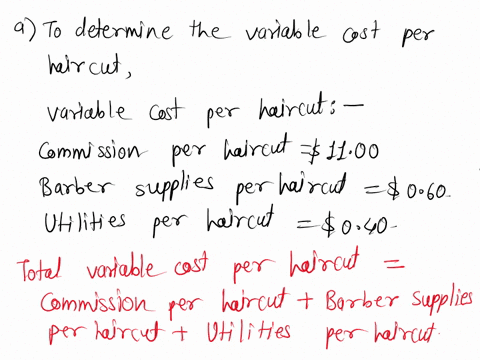 a) To determine the variable cost per
haircut,
variable cost per haircut: —
Commission per haircut = $ 11.00
Barber supplies per haircut = $ 0.60
Utilities per haircut = $ 0.40
Total variable cost per haircut =
Commission per haircut + Barber supplies
per haircut + Utilities per haircut.